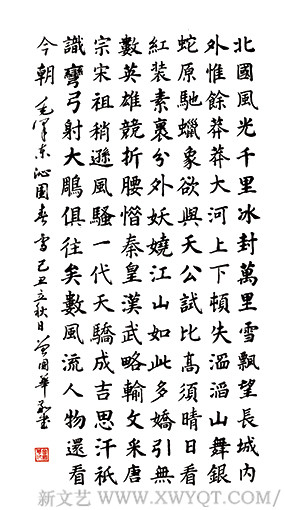 北國風光千里冰封萬里雪飄望長城內
外惟餘莽莽大河上下頓失滔滔山舞銀
蛇原馳蠟象欲與天公試比高須晴日看
紅裝素裹分外妖嬈江山如此多嬌引無
數英雄競折腰惜秦皇漢武略輸文采唐
宗宋祖稍遜風騷一代天驕成吉思汗祇
識彎弓射大鵰俱往矣數風流人物還看
今朝 毛澤東沁園春雪己丑立秋日
新文艺 WWW.XWYQT.COM/